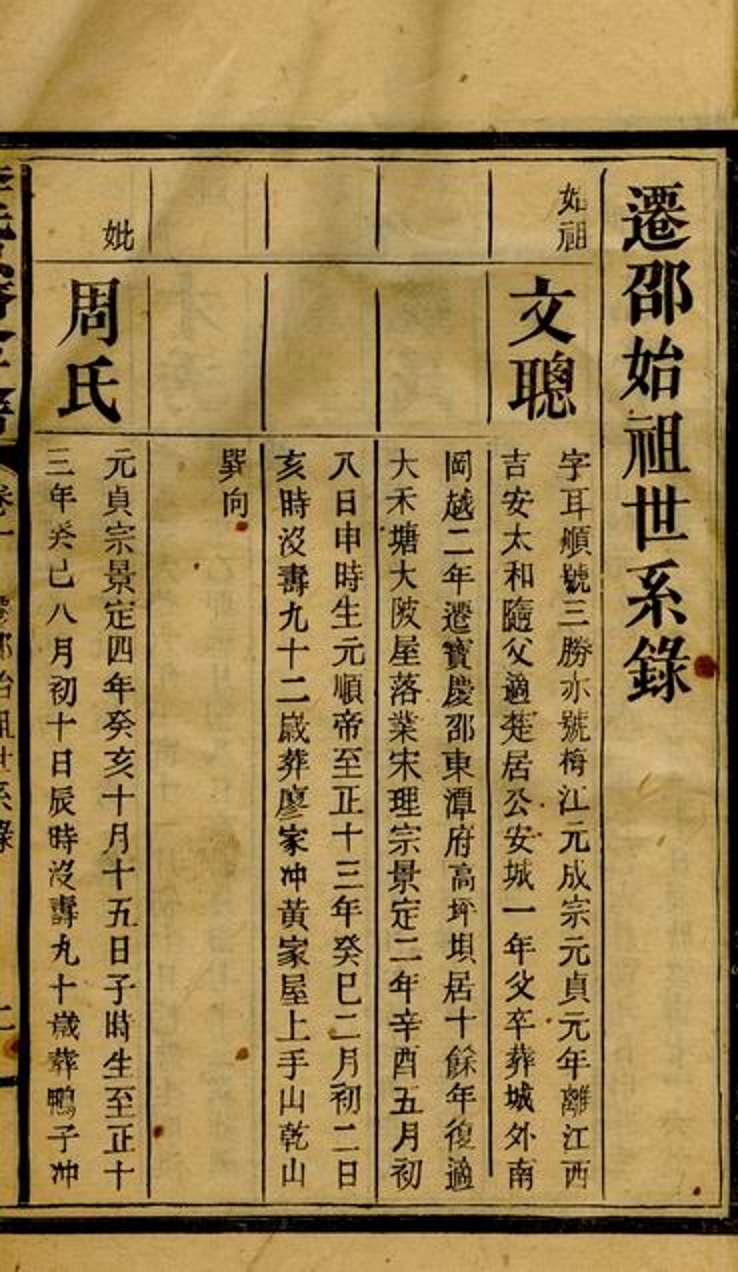 遷邵始祖世系錄
始祖
文聰
字耳順號三勝亦號梅江元成宗元貞元年離江西
吉安太和隨父適楚居公安城一年父卒葬城外南
岡越二年遷寶慶邵東潭府高坪垻居十餘年復適
大禾塘大陂屋落業宋理宗景定二年辛酉五月初
八日申時生元順帝至正十三年癸巳二月初二日
亥時沒壽九十二歲葬廖家冲黃家屋上手山乾山
巽向
妣
周氏
元貞宗景定四年癸亥十月十五日子時生至正十
三年癸巳八月初十日辰時沒壽九十歲葬鴨子冲
卷一
遷邵始祖世系錄
二